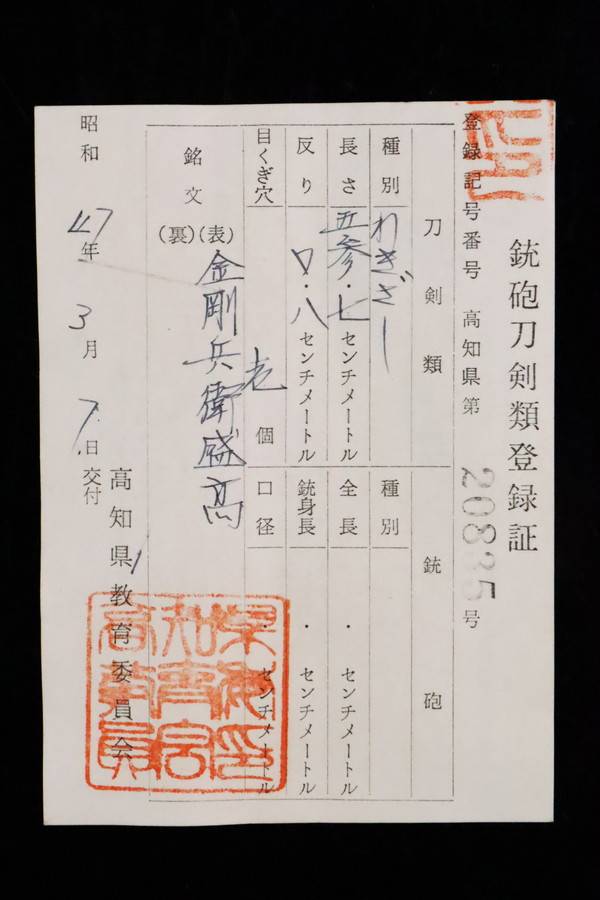 銃砲刀剣類登録証
登録記号番号 高知県第 20835 号
刀剣類 銃砲
種別 わきざし 種別
長さ 五参・七センチメートル 全長 ・ センチメートル
反り 〇・八センチメートル 銃身長 ・ センチメートル
目くぎ穴 壱個 口径 ・ センチメートル
銘文 (表) 金剛兵衛盛高
(裏)
高知県教育委員会
昭和47年3月7日交付